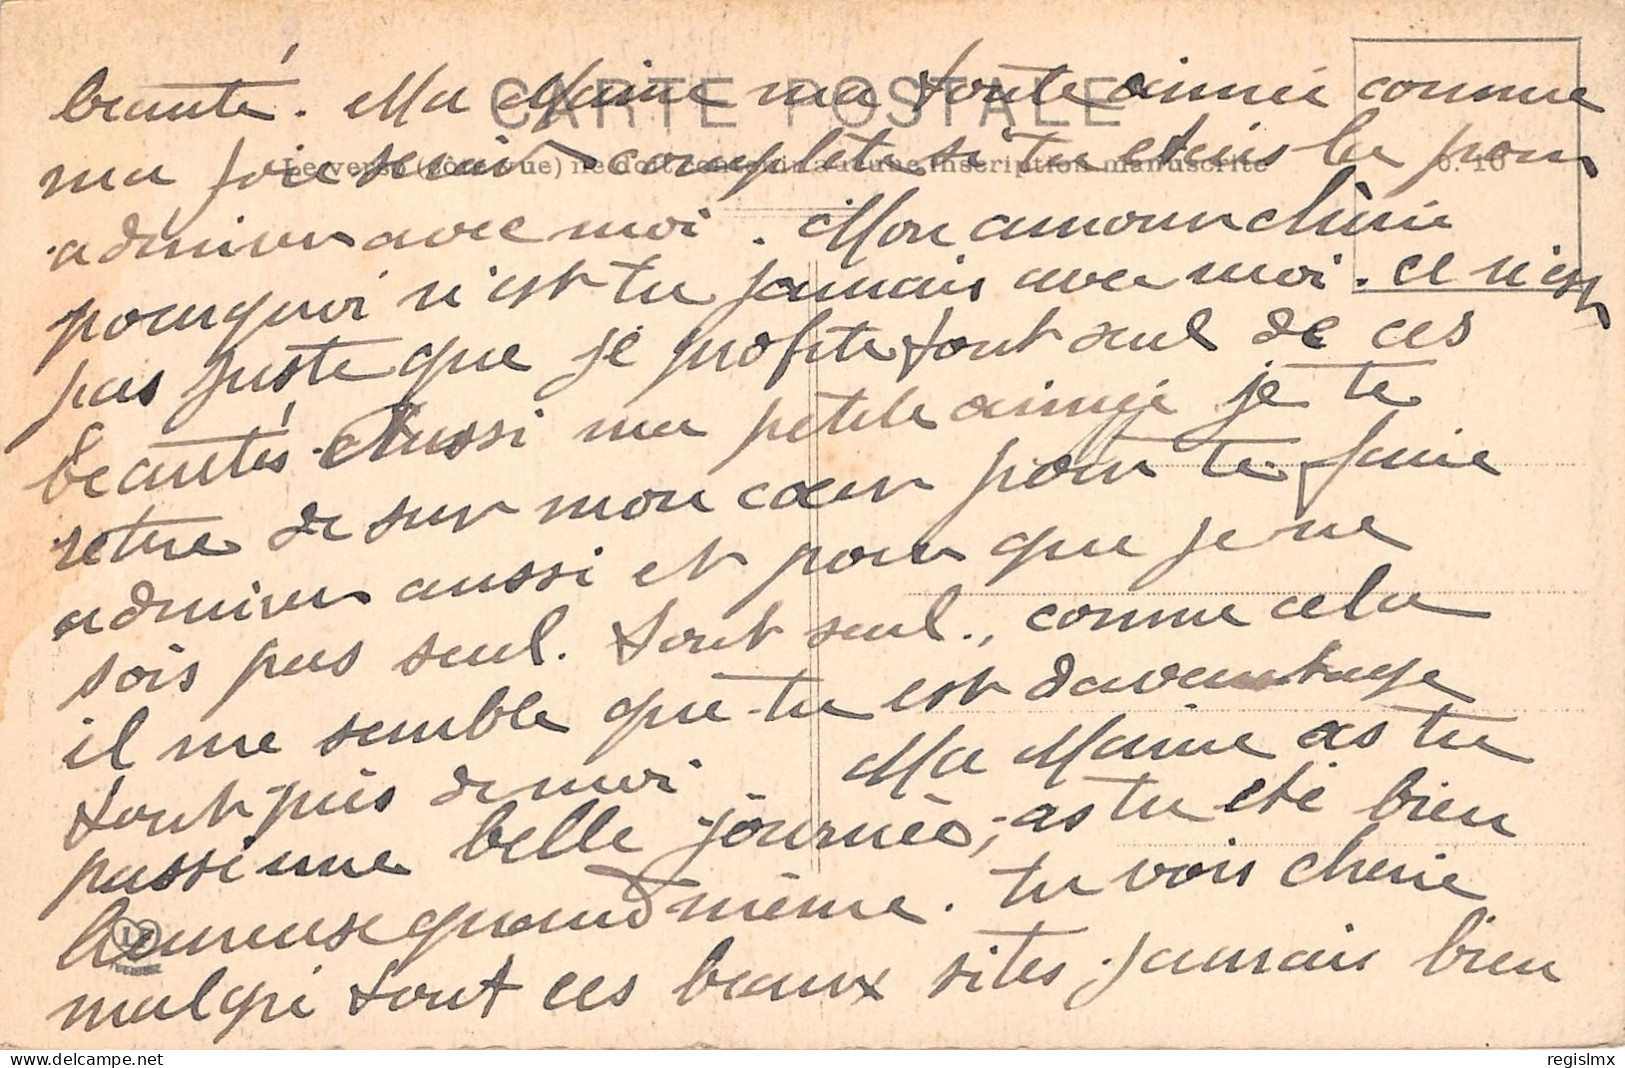 CARTE POSTALE
Le verso (côté vue) ne doit contenir aucune inscription manuscrite
beauté. Ma Maine ma toute aimée comme
ma joie serait complète si tu etais la pour
admirer avec moi. Mon amour chérie
pourquoi n'est tu jamais avec moi. Ce n'est
pas juste que je profite tout seul de ces
beautés. Aussi ma petite aimée je te
retire de sur mon cœur pour te faire
admirer aussi et pour que je ne
sois pas seul. tout seul., comme cela
il me semble que tu est davantage
tout près de moi Ma Maine as tu
passé une belle journée, as tu été bien
heureuse quand même. tu vois cherie
malgré tout ces beaux sites jamais bien
regislmx